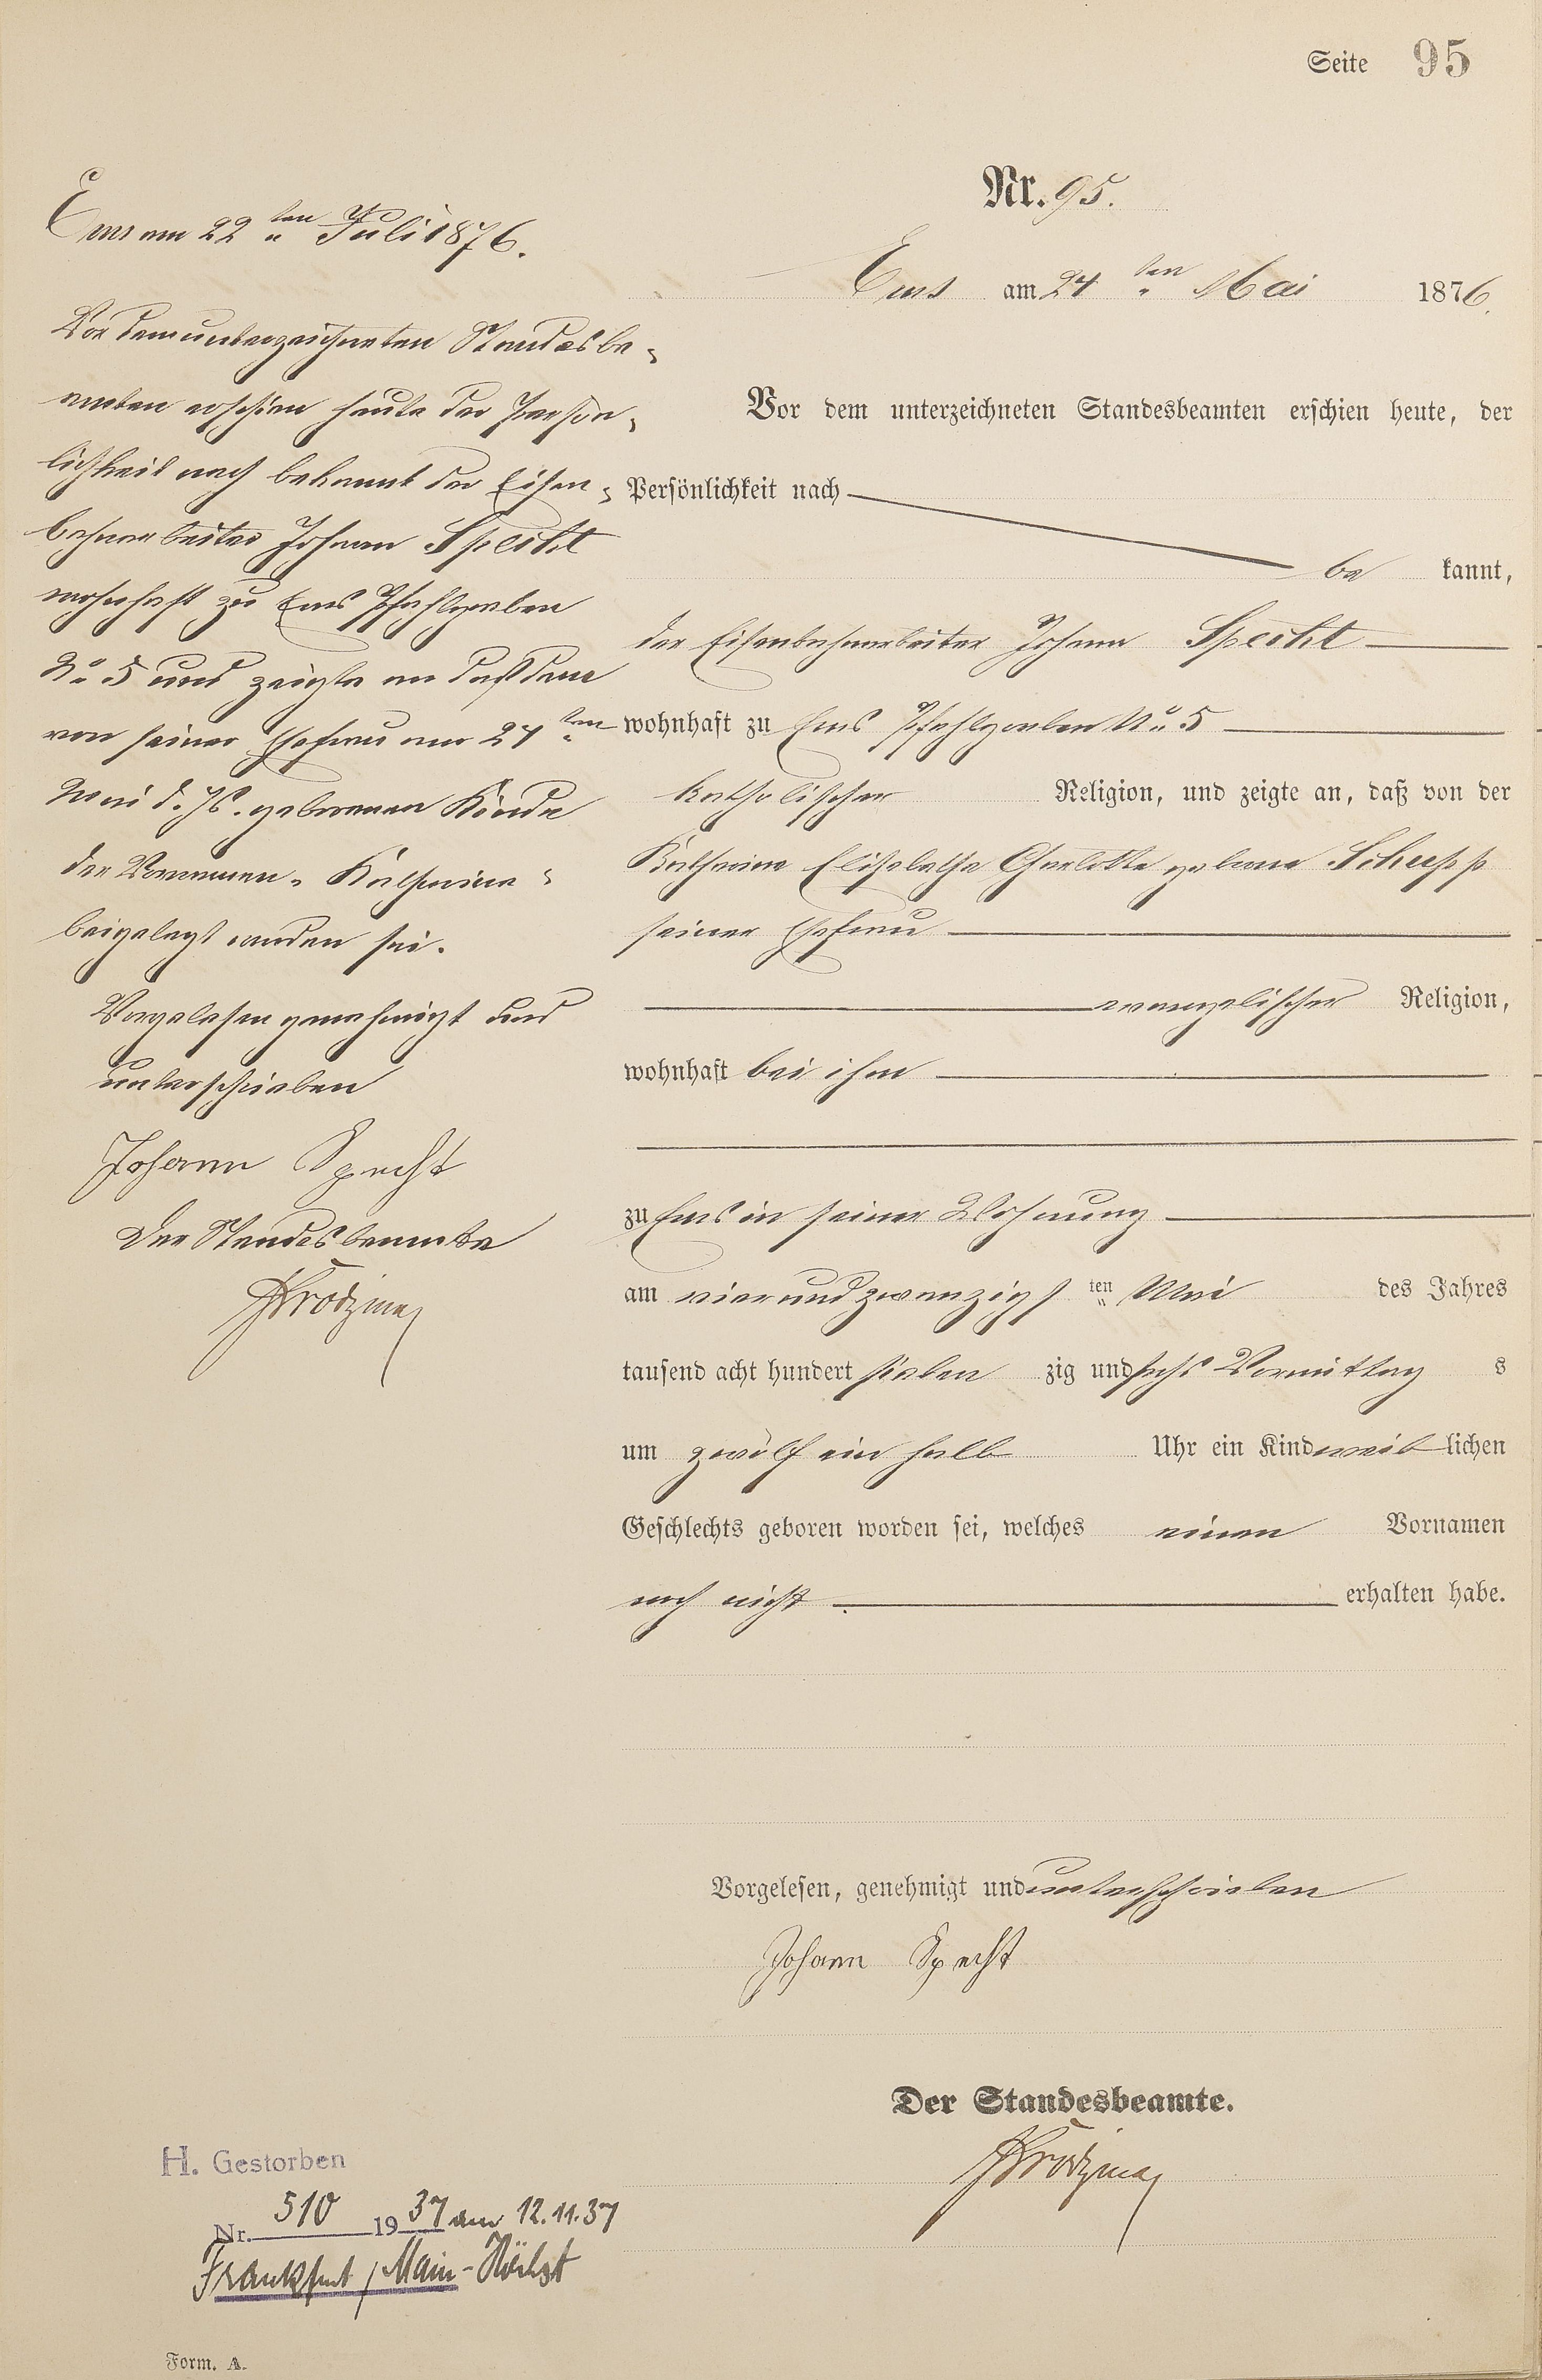 Seite 95
Nr. 95.
Ems am 24ten Mai 1876.
Vor dem unterzeichneten Standesbeamten erschien heute, der
Persönlichkeit nach
be kannt,
der Eisenbahnarbeiter Johann Specht
wohnhaft zu Ems Pfahlgraben No 5
katholischer Religion, und zeigte an, daß von der
Katharina Elisabetha Charlotte geborne Schupp
seiner Ehefrau
evangelischer Religion,
wohnhaft bei ihm
zu Ems in seiner Wohnung
am vierundzwanzigsten Mai des Jahres
tausend acht hundert sieben zig und sechs Vormittag s
um zwölf ein halb Uhr ein Kind weiblichen
Geschlechts geboren worden sei, welches einen Vornamen
noch nicht erhalten habe.
Vorgelesen, genehmigt und unterschrieben
Johann Specht
Der Standesbeamte.
Ems am 22ten Juli 1876.
Vor dem unterzeichneten Standesbe-
amten erschien heute der Persön-
lichkeit nach bekannt der Eisen-
bahnarbeiter Johann Specht
wohnhaft zu Ems Pfahlgraben
No 5 und zeigte an daß dem
von seiner Ehefrau am 24ten
Mai d. Js. geborenen Kinde
der Vornamen "Katharina"
beigelegt worden sei.
Vorgelesen genehmigt und
unterschrieben
Johann Specht
Der Standesbeamte
H. Gestorben
Nr. 510 1937 am 12.11.37
Frankfurt / Main-Höchst
Form. A.